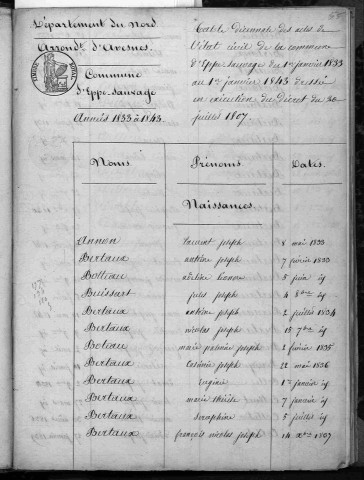 Département du Nord.
Arrond.t d'Avesnes.
TIMBRE ROYAL
Commune
d'Eppe-Sauvage
Années 1833 à 1843.
Table décennale des actes de
l'état civil de la commune
d'Eppe Sauvage du 1er janvier 1833
au 1er janvier 1843 dressée
en exécution du Décret du 20
juillet 1807.
Noms Prénoms Dates
Naissances.
Annon joseph 8 mai 1833
Bertaux antoine joseph 7 février 1833
Botteau adeline 5 juin id
Buissart jules joseph 4 8bre id
Bertaux antoine joseph 2 juillet 1834
Bertaux nicolas joseph 15 7bre id
Boteau marie joseph 2 février 1835
Bertaux Casimir joseph 22 mai 1836
Bertaux Eugénie 1er janvier id
Bertaux marie thérèse 7 janvier id
Bertaux Séraphine 5 juillet id
Bertaux françois nicolas joseph 14